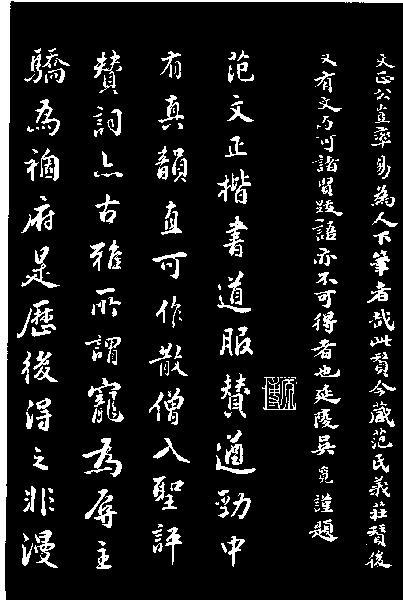 文正公豈率易為人下筆者哉此贊今藏范氏義莊贊後
又有文与可諸賢題語亦不可得者也延陵吳寬謹題
范文正楷書道服贊遒勁中
有真韻直可作散僧入聖評
贊詞亦古雅所謂寵為辱主
驕為禍府是歷後得之非漫